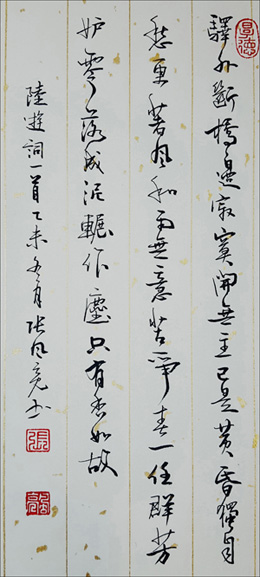 驛外斷橋邊寂寞開無主已是黃昏獨自
愁更著風和雨無意苦爭春一任群芳
妒零落成泥輾作塵只有香如故
陸遊詞一首乙未冬月张风亮书
張